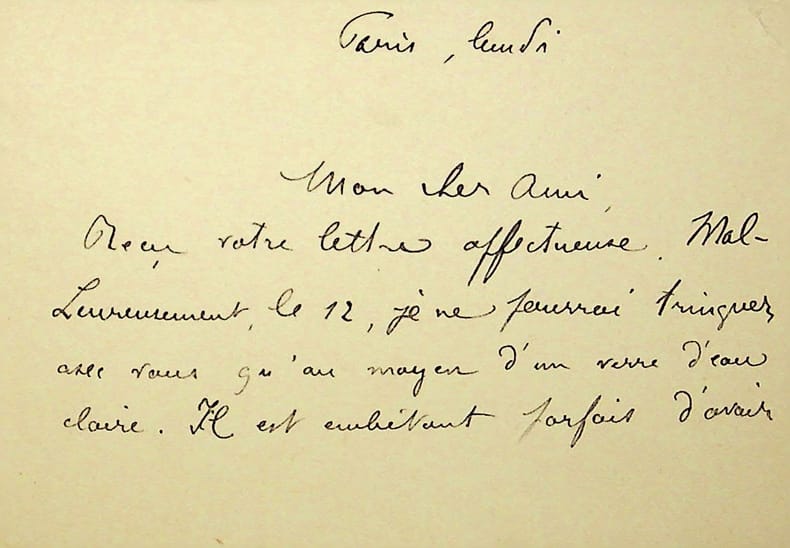 Paris, lundi
Mon cher Ami,
Reçu votre lettre affectueuse. Mal-
heureusement, le 12, je ne pourrai trinquer
avec vous qu'au moyen d'un verre d'eau
claire. Il est embêtant parfois d'avoir